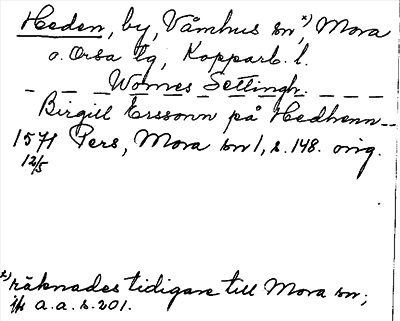 Heden, by, Våmhus sn *), Mora
o. Orsa tg, Kopparb. l.
Womes Settingh.
Birgitt Erssonn på Hedhenn --
1571 Pers, Mora sn 1, s. 148. orig.
12/5
*) räknades tidigare till Mora sn;
jfr a.a. s. 201.